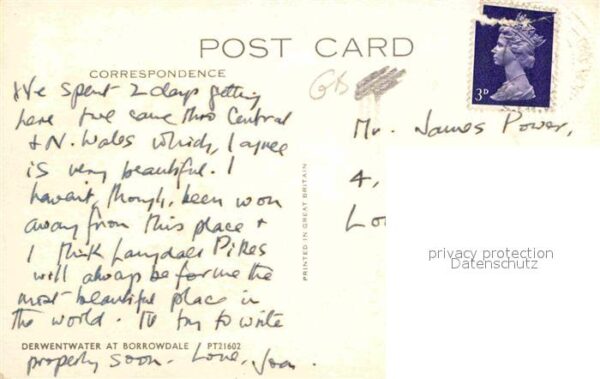 POST CARD
CORRESPONDENCE
We spent 2 days getting
here & we came thro Central
& N. Wales which, I agree
is very beautiful. I
haven't, though, been won
away from this place &
I think Langdale Pikes
will always be for me the
most beautiful place in
the world. I'll try to write
properly soon. Love, Joan.
DERWENTWATER AT BORROWDALE PT21602
PRINTED IN GREAT BRITAIN
GB
3D
Mr. James Power,
4,
privacy protection
Datenschutz